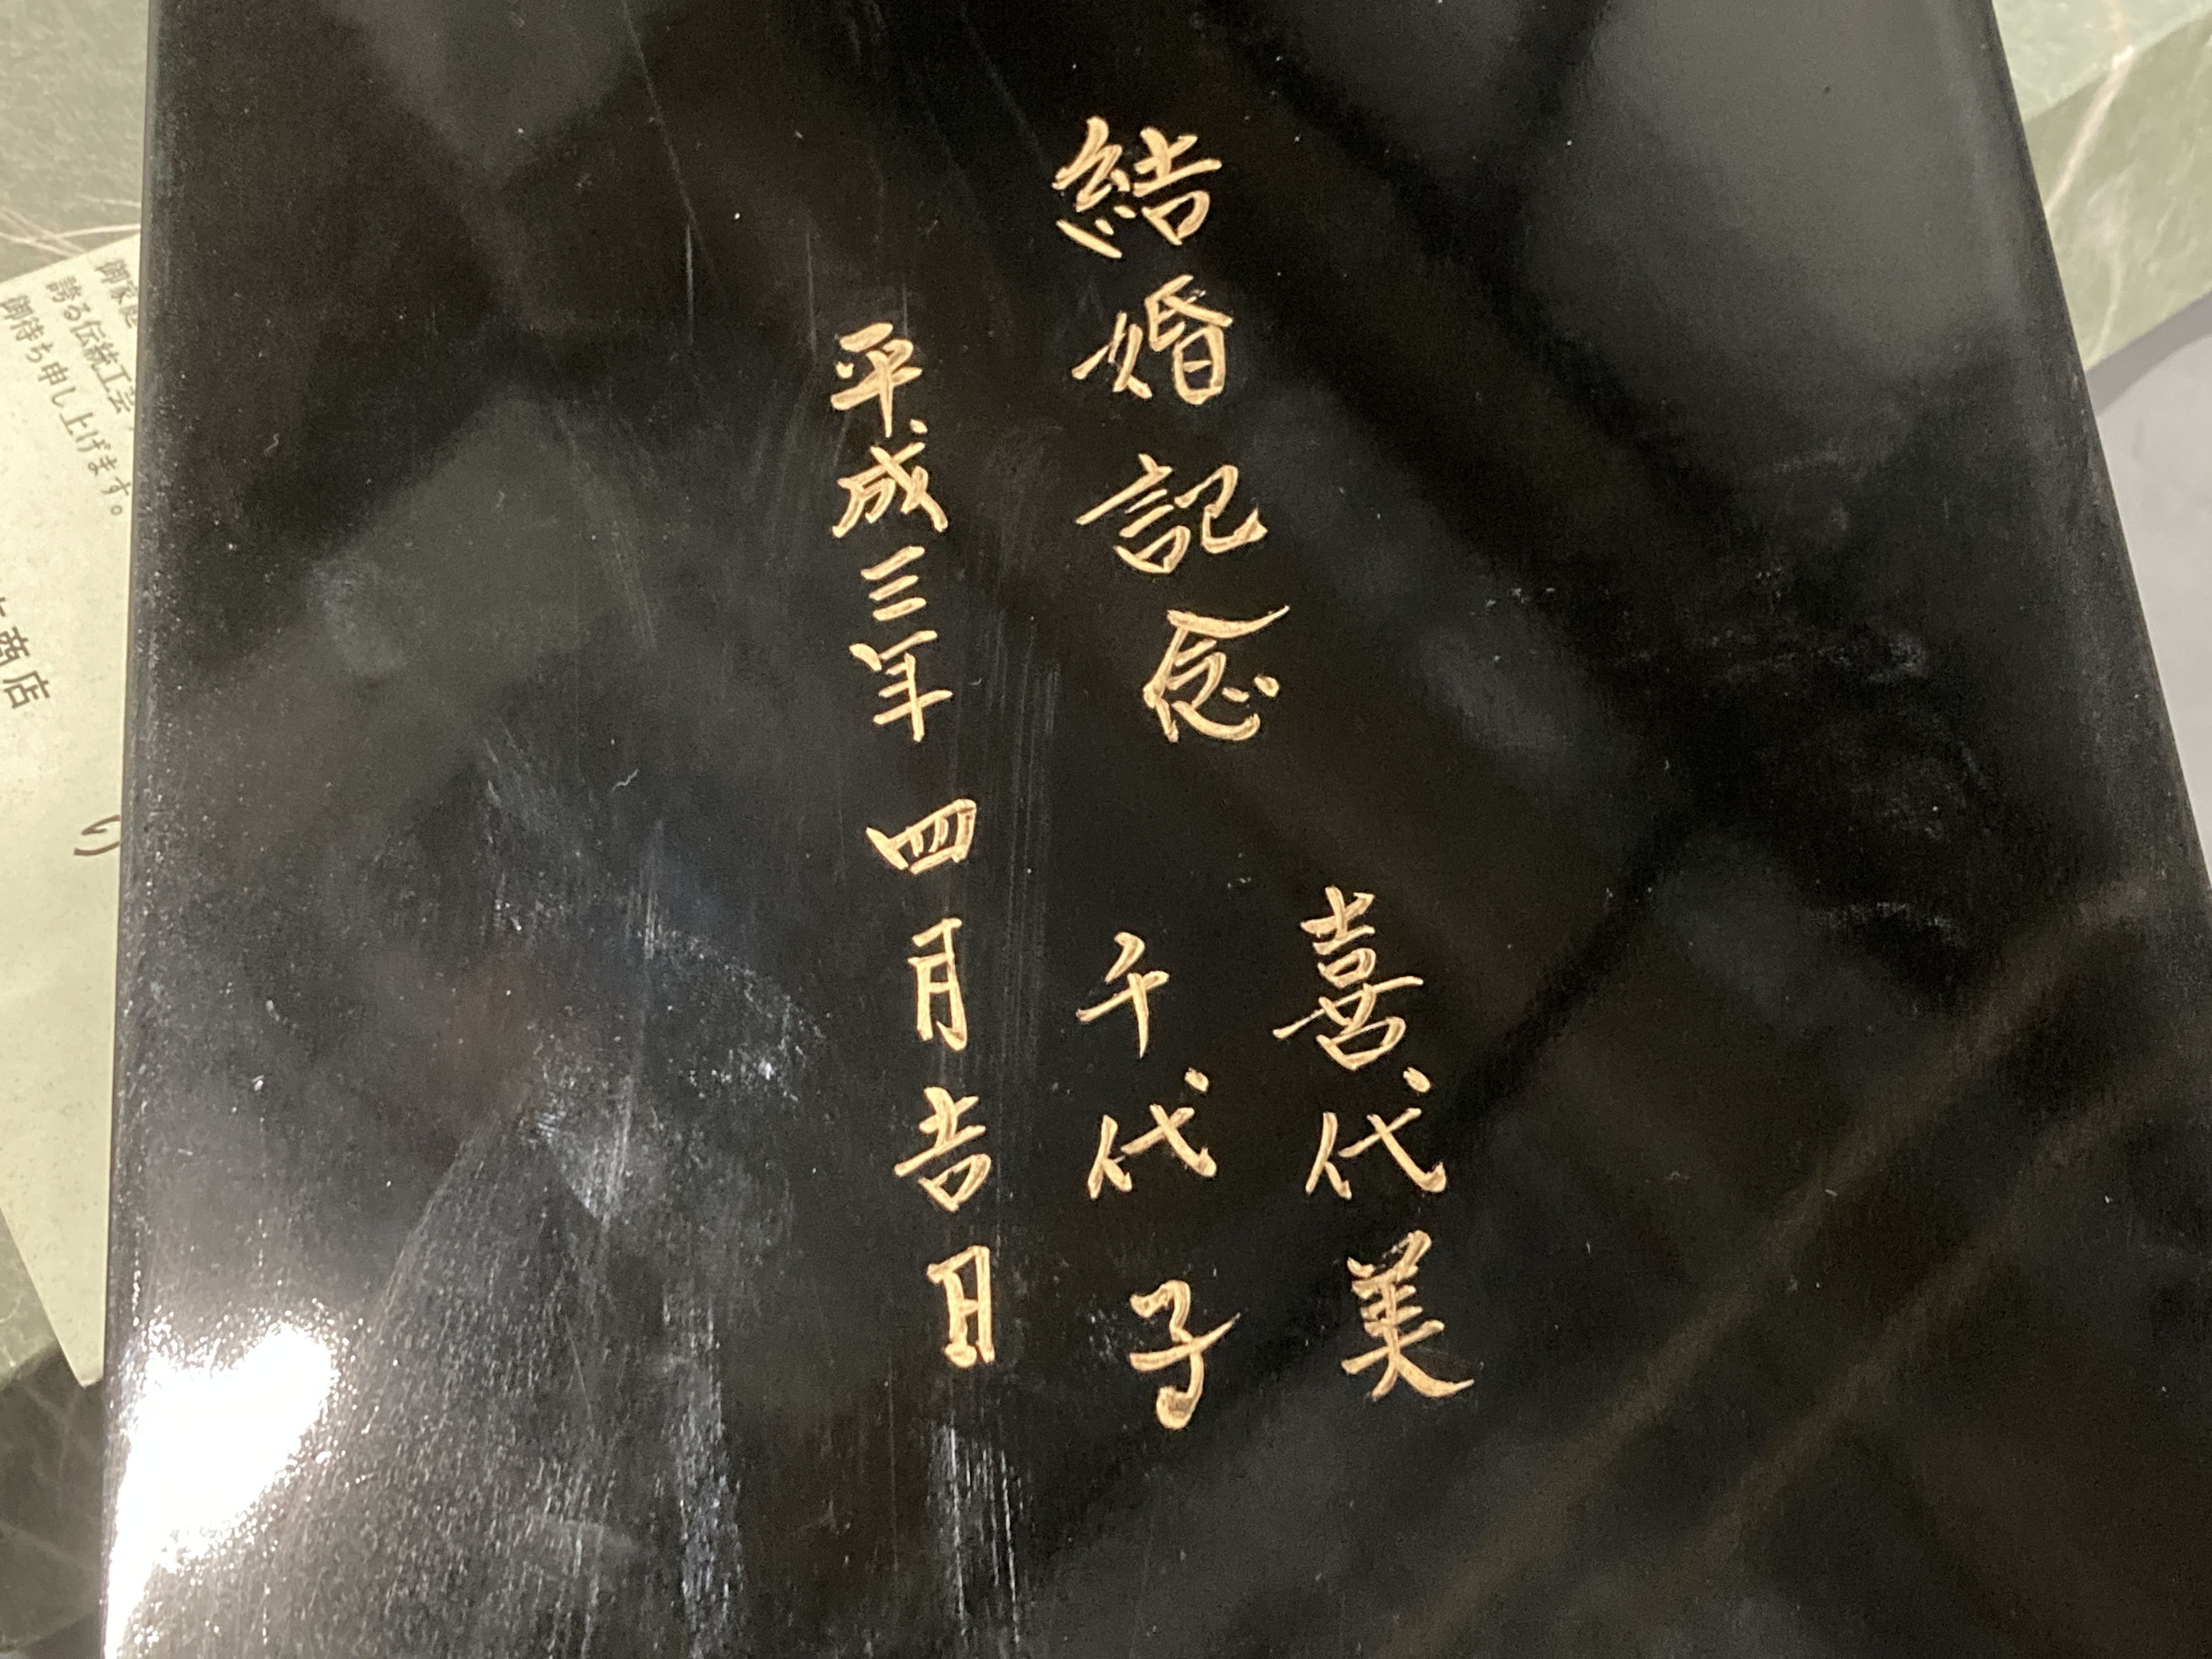 結婚記念
喜代美
千代子
平成三年 四月吉日
誇る伝統工芸
御待ち申し上げます。
商店
り